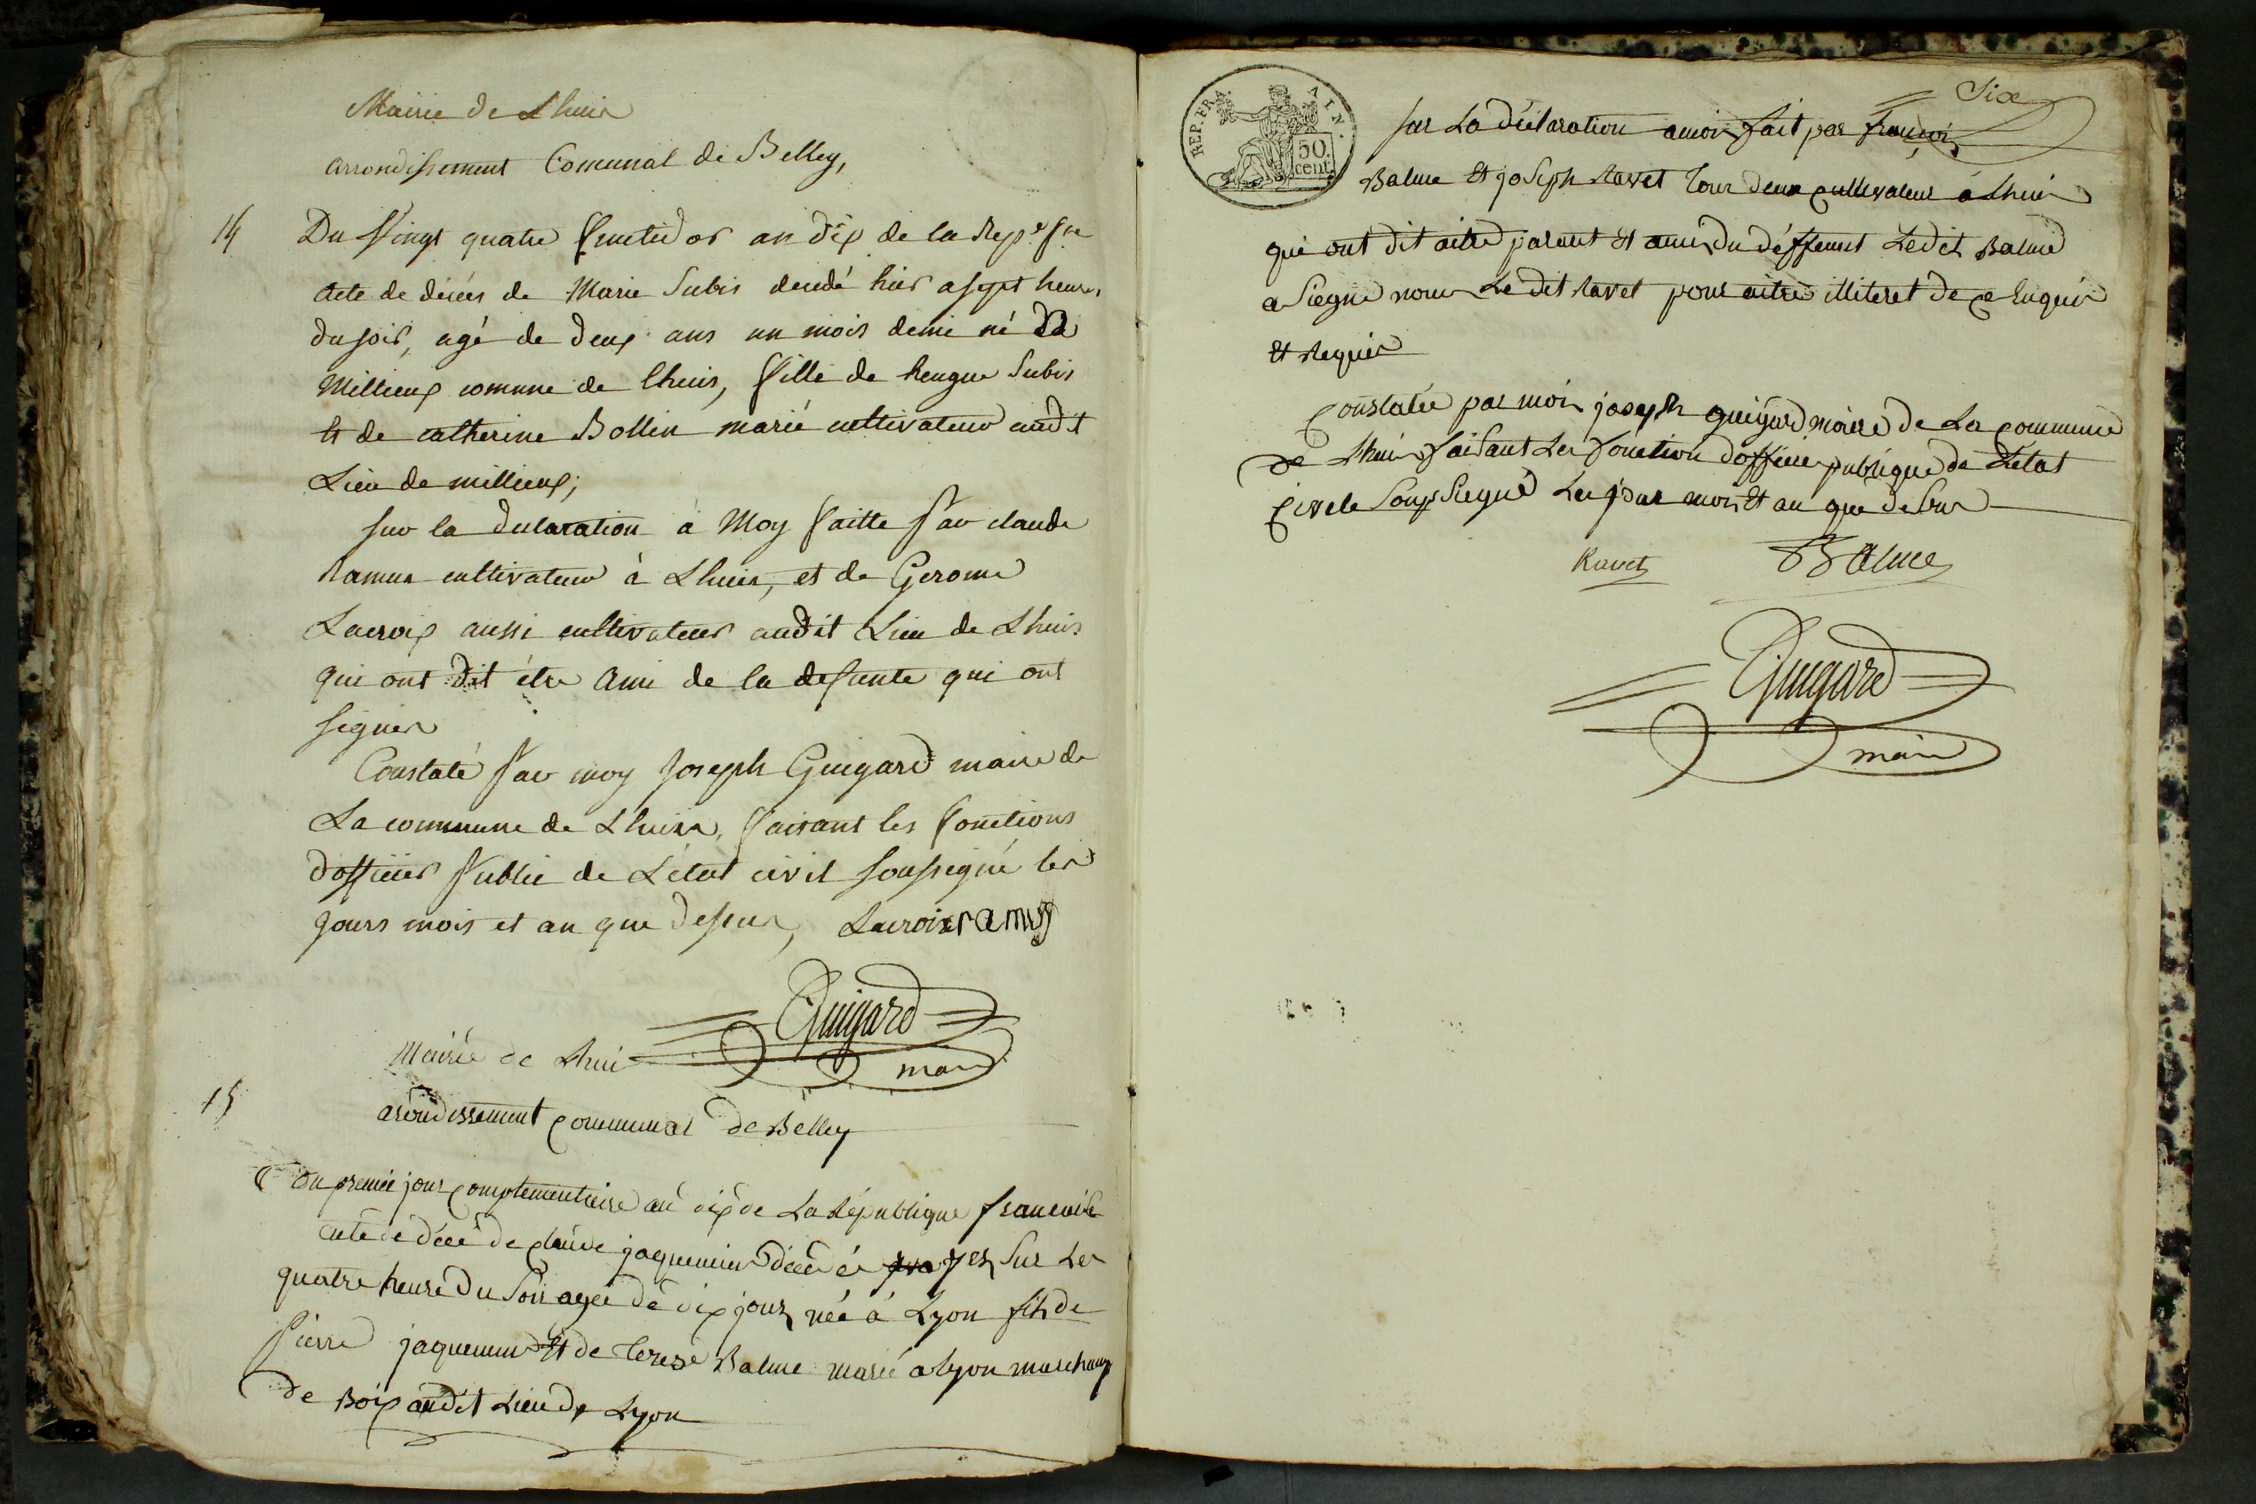 Mairie de Lhuis
arrondissement Communal de Belley,
14 Du Vingt quatre fructidor an dix de la Rep.e fse
Acte de décés de Marie Subis décédé hier a sept heures
du soir, agé de deux ans un mois demi né da
Millieux comune de lhuis, fille de hengue Subis
et de catherine Bollin marié cultivateur audit
Lieu de millieux;
sur la declaration à Moy faitte par claude
Ramus cultivateur à Lhuis, et de Gerome
Lacroix aussi cultivateur audit Lieu de Lhuis
qui ont dit étre Ami de la defunte qui ont
signer
Constaté par moy Joseph Guigard maire de
La commune de Lhuis, faisant les fonctions
d'officier Public de L'état civil soussigné les
jours mois et an que dessus, Lacroix ramus
Guigard
maire
Mairie de Lhui
15 arondissement communal de Belley
du premier jour complementaire an dix de La République francaise
acte de décé de claude jaquemin décédé yer sur Les
quatre heure du Soir agée de dix jour née à Lyon fils de
Pierre jaquemin Et de Terese Balme marié a lyon marchaux
de Boix audit Lieu de Lyon
Six
REP. FRA. 50 cent.
sur La déclaration amoi fait par francoi
Balme Et joseph Ravet Tour deux cultivateur à Lhuis
qui ont dit aitre parant Et ami du déffeunt Ledit Balme
a Siegné non Le dit Ravet pour aitre illiteret de ce Enquis
Et Requis
Constatée par moi joseph guigard maire de La commune
de Lhuis faisant Les fonction d'officie publique de L'etat
Civele Soux Siegné Les jour moi Et an que de Sus
Ravet Balme
Guigard
maire